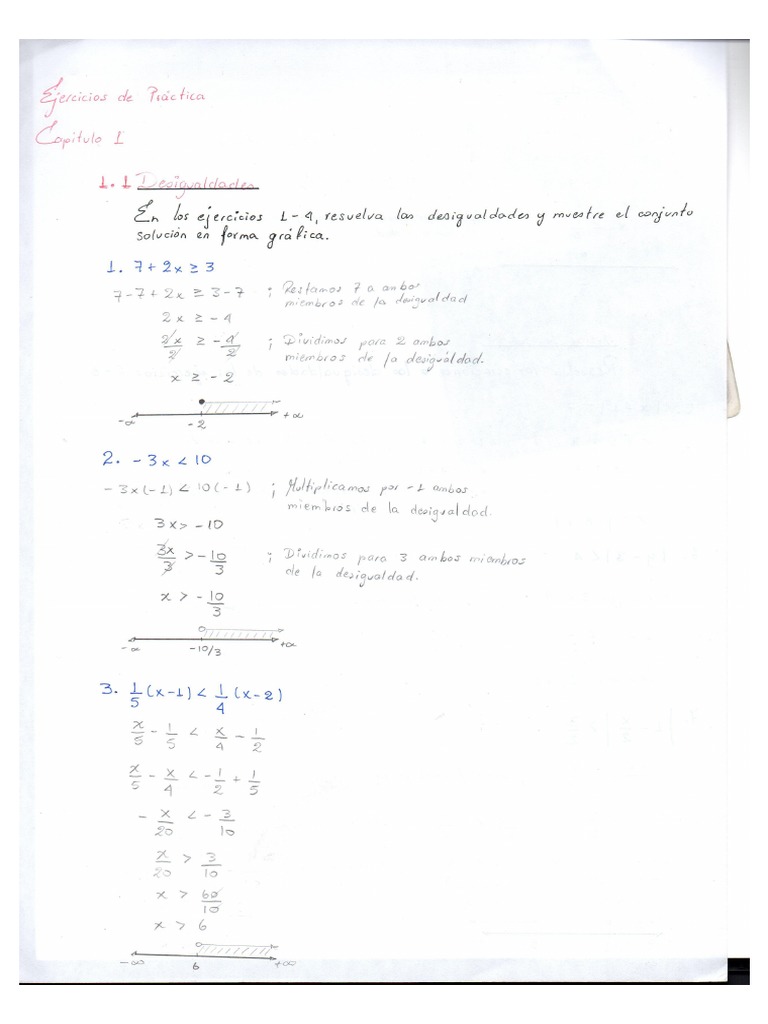 Ejercicios de Práctica
Capitulo 1
1.1 Desigualdades
En los ejercicios 1-4, resuelva las desigualdades y muestre el conjunto
solución en forma gráfica.
1. 7 + 2x ≥ 3
7 - 7 + 2x ≥ 3 - 7 ; Restamos 7 a ambos
miembros de la desigualdad
2x ≥ -4
2x/2 ≥ -4/2 ; Dividimos para 2 ambos
miembros de la desigualdad.
x ≥ -2
-∞ -2 +∞
2. -3x < 10
-3x(-1) < 10(-1) ; Multiplicamos por -1 ambos
miembros de la desigualdad.
3x > -10
3x/3 > -10/3 ; Dividimos para 3 ambos miembros
de la desigualdad.
x > -10/3
-∞ -10/3 +∞
3. 1/5 (x-1) < 1/4 (x-2)
x/5 - 1/5 < x/4 - 1/2
x/5 - x/4 < -1/2 + 1/5
-x/20 < -3/10
x/20 > 3/10
x > 60/10
x > 6
-∞ 6 +∞